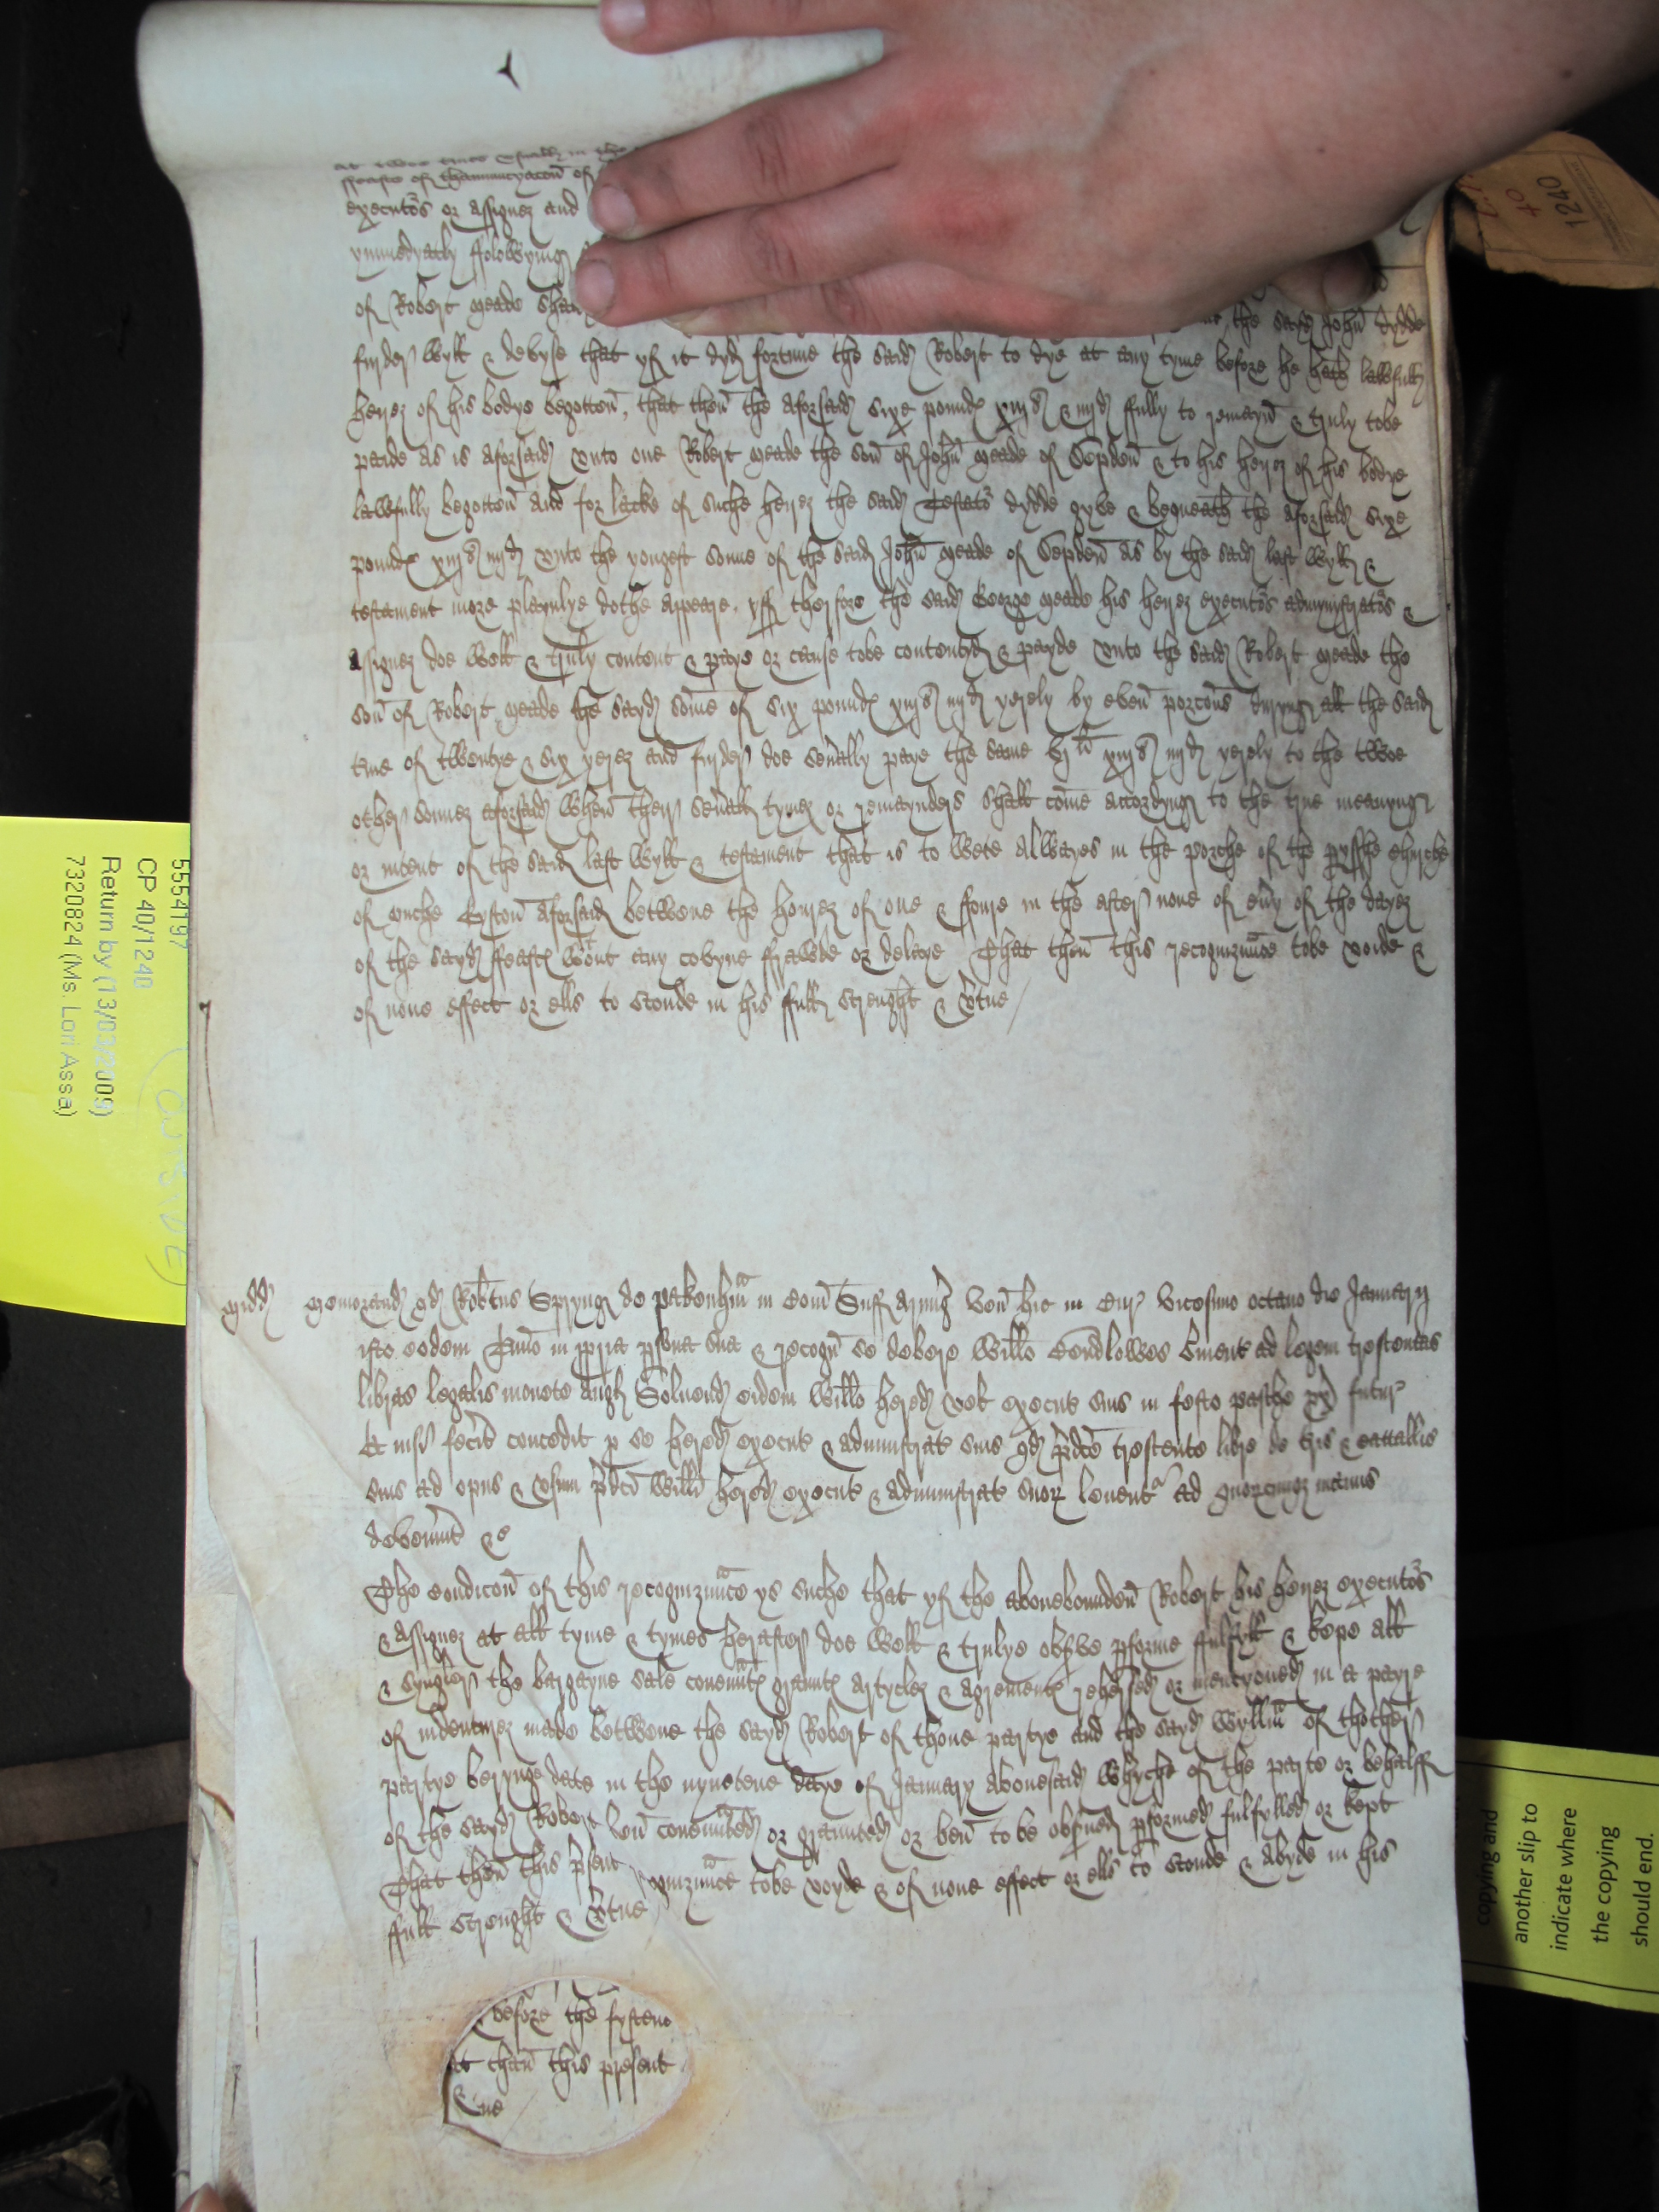 at twoo tymes equally in the
ffeaste of thannuncyacoñ of
executors or assignez and
ymmedyatly ffolowyng
of Robert Meade shal
the sayd John̄ dydde
furder wyll & devyse that yf it dyd fortune the said Robert to dye at any tyme before he hath lawfully
heyrez of his bodye begotten, that then̄ the aforsaid sixe pound xiijs & iiijd ffully to remayn̄ & truly tobe
paide as is aforsaid vnto one Robert Meade the son̄ of John̄ Meade of Depden̄ & to his heyrez of his bodye
lawfully begotton̄ And for lacke of suche heyrez the said Testator dydde gyve & bequeath the aforsaid sixe
pound xiijs iiijd vnto the yongest sonne of the said John̄ Meade of Depden̄ as by the said last wyll &
testament more playnlye dothe appeare. yff therfore the said George Meade his heyrez executors admynystrators &
assignez doe well & truly content & paye or cause tobe contentyd & payde vnto the said Robert Meade the
son̄ of Robert Meade the sayd som̄e of six pound xiijs iiijd yerely by even̄ porcons duryng all the said
tme of twentye & six yerez and furder doe sev'ally paye the same vjli xiijs iiijd yerely to the twoe
other sonnez aforsaid when̄ their sev'all tymez or remaynders shall com̄e accordyng to the true meanyng
or intent of the said last wyll & testament that is to wete Allwayes in the porche of the pysshe churche
of Muche Eyston̄ aforsaid betwene the hourez of one & ffoure in the after none of eu'y of the dayez
of the sayd ffeast wtout any covyne ffrawde or delaye That then̄ this recognizunce tobe voide &
of none effect or ells to stonde in his ffull strenght & v'tue
Midd Memorand qd Rob'tus Spryng de Pakenhm̄ in Com̄ Suff Armig' ven̄ hic in Cur' vicesimo octauo die Januarij
isto eodem T'mino in ppria psona sua & recogn̄ se debere Will'o Cendlowes S'uient ad legem trescentas
libras legalis monete Angl Soluend eidem Will'o hered vel execut suis in festo pasche px' futur'
Et nisi fec'it concedit p se hered execut & administrat suis qd p'dce trescente libre de t'ris & catallis
suis ad opus & vsum p'dci Will'i hered execut & administrat suor' leuent' ad quorcumqz manus
deven'int &c
The condicon̄ of this recognizunce ys suche that yf the abovebounden̄ Robert his heyrez executors
& Assignez at all tyme & tymes herafter doe well & trulye obs've pforme ffulfyll & kepe all
& synguler the bargayne sale covenūt graunt artyclez & agrement reherced or mencyoned in a payre
of indenturez made betwene the sayd Robert of thone partye and the sayd Wyllm̄ of thother
partye beryng date in the nynetene daye of January abovesaid whyche of the parte or behalff
of the sayd Robert ben̄ covenūted or graunted or ben̄ to be obs'ued pformed fulfylled or kept
That then̄ this p'sent recognizunce tobe voyde & of none effect or ells to stonde & abyde in his
ffull strenght & v'tue
before the fystene
at than̄ this present
tue
5554197
CP 40/1240
Return by (13/03/2009)
7320824 (Ms. Lori Assa)
CURSIVE
40
1240
copying and
another slip to
indicate where
the copying
should end.